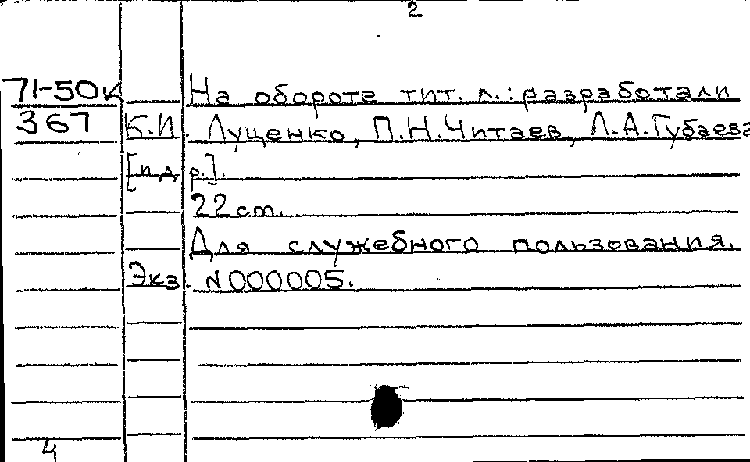 2
71-50к На обороте тит. л.: разработали
367 К.И. Луценко, П.Н.Читаев, Л.А.Губаева
[и др.].
22 cm.
Для служебного пользования.
Экз. N000005.
4